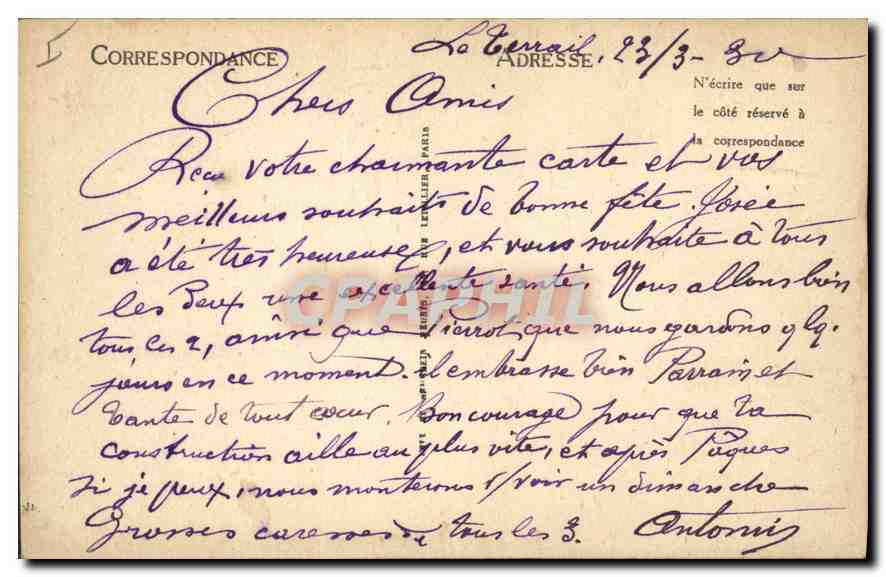 I
Le Terrail, 23/3-30
CORRESPONDANCE
ADRESSE
N'écrire que sur
le côté réservé à
la correspondance
Chers Amis
Reçu votre charmante carte et vos
meilleurs souhaits de bonne fête. Josée
a été très heureuse, et vous souhaite à tous
les deux une excellente santé. Nous allons bien
tous les 2, ainsi que Pierrot que nous gardons qlq.
jours en ce moment. Il embrasse bien Parrain et
Tante de tout cœur. Bon courage pour que la
construction aille au plus vite, et après Pâques
si je peux, nous monterons v/voir un dimanche
Grosses caresses de tous les 3. Antonin
RUE LETELLIER, PARIS
CPAPHIL